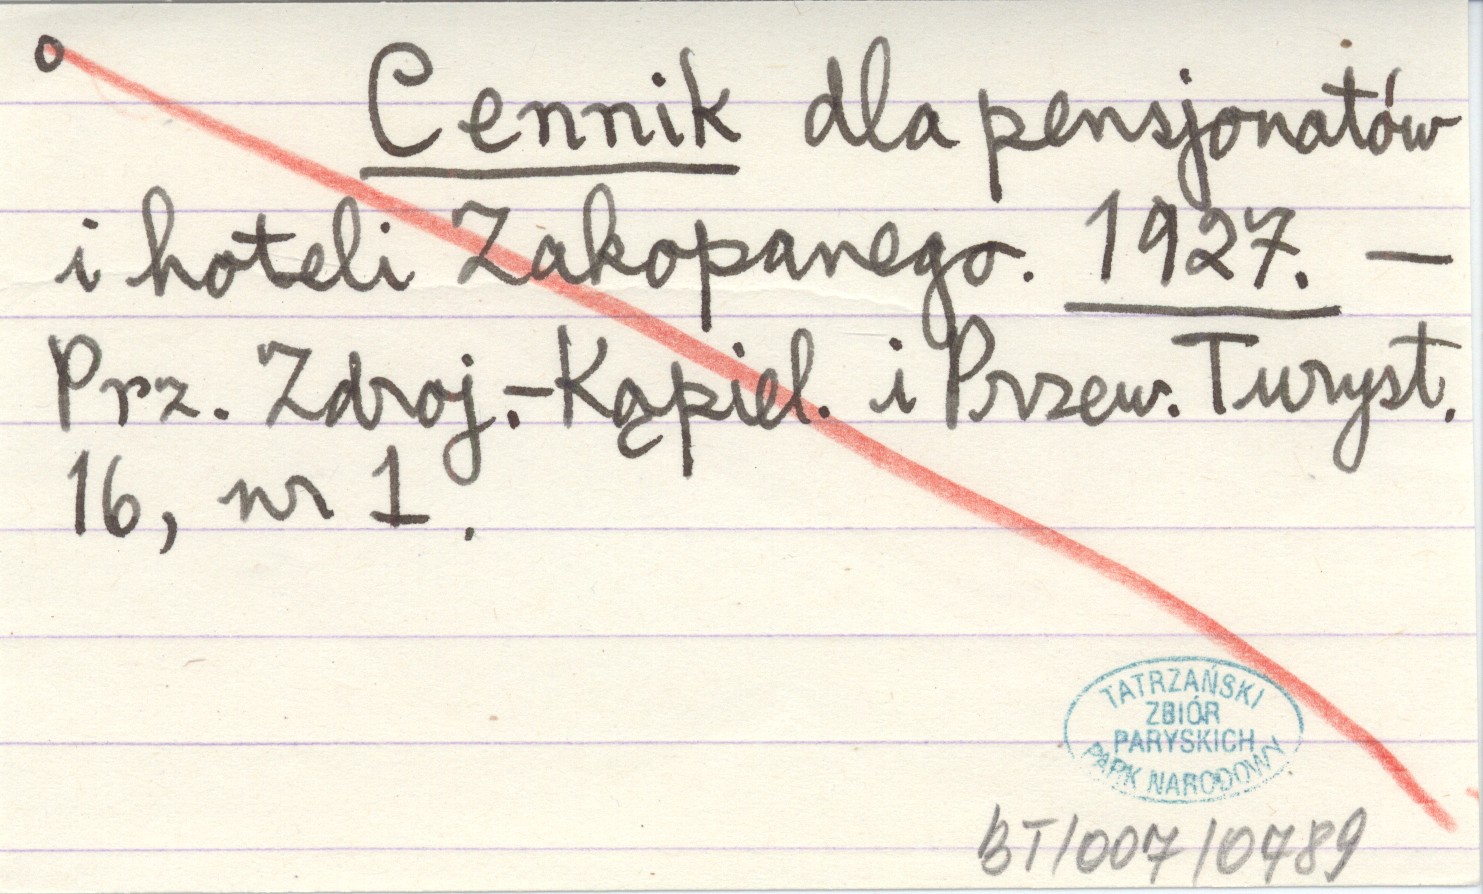 o Cennik dla pensjonatów
i hoteli Zakopanego. 1927. —
Prz. Zdroj.-Kąpiel. i Przew. Turyst.
16, nr 1.
TATRZAŃSKI
ZBIÓR
PARYSKICH
PARK NARODOWY
BT/007/0789